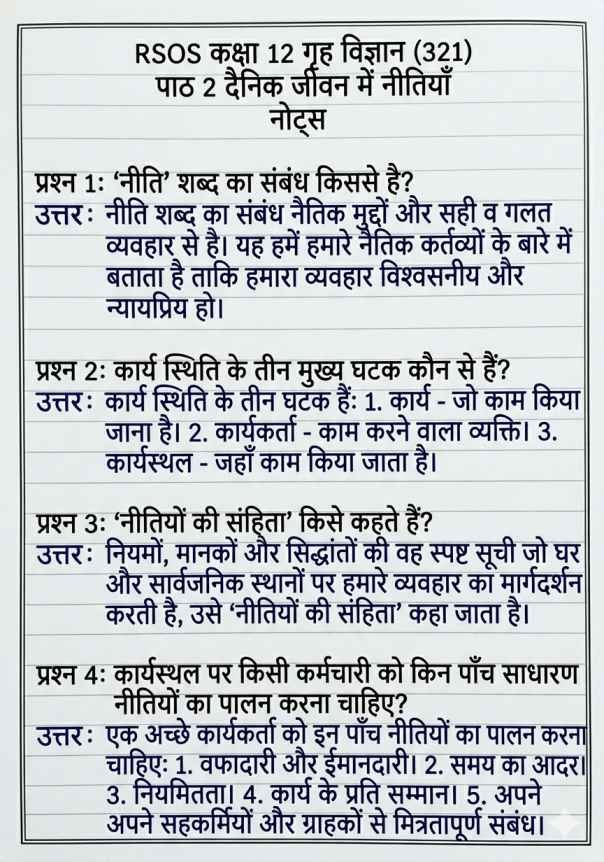 RSOS कक्षा 12 गृह विज्ञान (321)
पाठ 2 दैनिक जीवन में नीतियाँ
नोट्स
प्रश्न 1: ‘नीति’ शब्द का संबंध किससे है?
उत्तर: नीति शब्द का संबंध नैतिक मुद्दों और सही व गलत
व्यवहार से है। यह हमें हमारे नैतिक कर्तव्यों के बारे में
बताता है ताकि हमारा व्यवहार विश्वसनीय और
न्यायप्रिय हो।
प्रश्न 2: कार्य स्थिति के तीन मुख्य घटक कौन से हैं?
उत्तर: कार्य स्थिति के तीन घटक हैं: 1. कार्य - जो काम किया
जाना है। 2. कार्यकर्ता - काम करने वाला व्यक्ति। 3.
कार्यस्थल - जहाँ काम किया जाता है।
प्रश्न 3: ‘नीतियों की संहिता’ किसे कहते हैं?
उत्तर: नियमों, मानकों और सिद्धांतों की वह स्पष्ट सूची जो घर
और सार्वजनिक स्थानों पर हमारे व्यवहार का मार्गदर्शन
करती है, उसे ‘नीतियों की संहिता’ कहा जाता है।
प्रश्न 4: कार्यस्थल पर किसी कर्मचारी को किन पाँच साधारण
नीतियों का पालन करना चाहिए?
उत्तर: एक अच्छे कार्यकर्ता को इन पाँच नीतियों का पालन करना
चाहिए: 1. वफादारी और ईमानदारी। 2. समय का आदर।
3. नियमितता। 4. कार्य के प्रति सम्मान। 5. अपने
अपने सहकर्मियों और ग्राहकों से मित्रतापूर्ण संबंध।